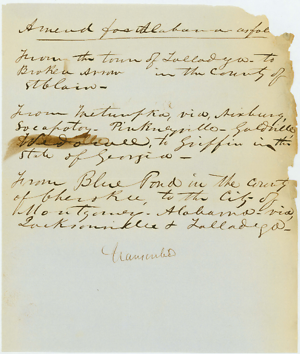 Amend for Alabama as fol
From the town of Talladega to
Broken Arrow in the County of
St Clair -
From Wetumpka, via, Nixburg,
Socapotoy Pinkneyville Goldville
to Griffin in the
State of Georgia -
From Blue Pond in the county
of Cherokee, to the City of
Montgomery - Alabama - via,
Jacksonville & Talladega -